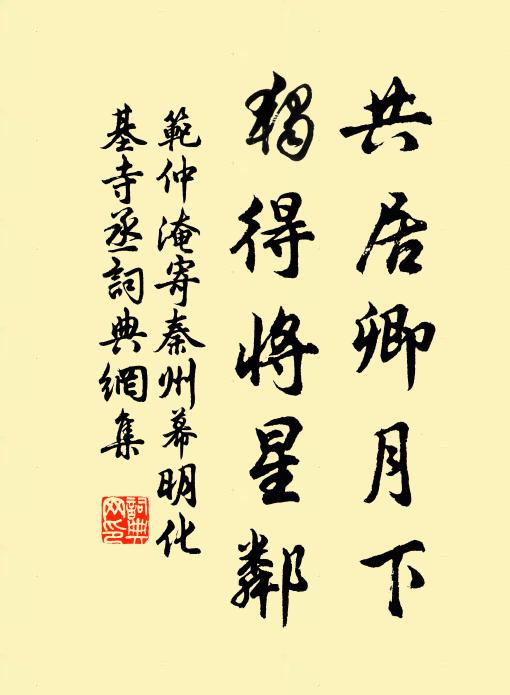 共居卿月下
獨得將星鄰
範仲淹寄秦州幕明化
基寺丞詞典網集
詞典
網印